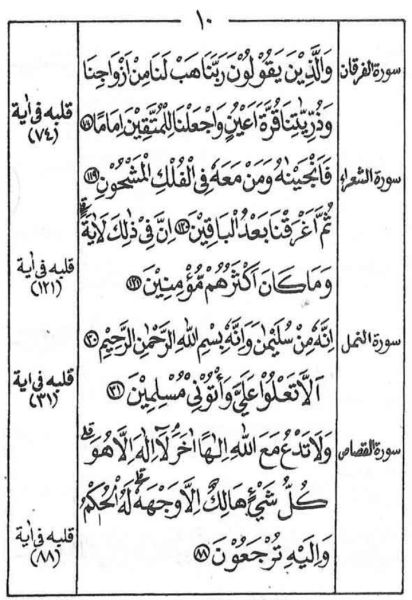 ١٠
سورة الفرقان
وَالَّذِيْنَ يَقُوْلُوْنَ رَبَّنَا هَبْ لَنَا مِنْ اَزْوَاجِنَا
وَذُرِّيّٰتِنَا قُرَّةَ اَعْيُنٍ وَاجْعَلْنَا لِلْمُتَّقِيْنَ اِمَامًا ﴿٧٤﴾
قلبه فى اية
(٧٤)
سورة الشعراء
فَاَنْجَيْنٰهُ وَمَنْ مَعَهٗ فِي الْفُلْكِ الْمَشْحُوْنِ ﴿١١٩﴾
ثُمَّ اَغْرَقْنَا بَعْدُ الْبَاقِيْنَ ﴿١٢٠﴾ اِنَّ فِيْ ذٰلِكَ لَاٰيَةً
وَمَا كَانَ اَكْثَرُهُمْ مُّؤْمِنِيْنَ ﴿١٢١﴾
قلبه فى اية
(١٢١)
سورة النمل
اِنَّهٗ مِنْ سُلَيْمٰنَ وَاِنَّهٗ بِسْمِ اللهِ الرَّحْمٰنِ الرَّحِيْمِ ﴿٣٠﴾
اَلَّا تَعْلُوْا عَلَيَّ وَأْتُوْنِيْ مُسْلِمِيْنَ ﴿٣١﴾
قلبه فى اية
(٣١)
سورة القصاص
وَلَا تَدْعُ مَعَ اللهِ اِلٰهًا اٰخَرَ لَآ اِلٰهَ اِلَّا هُوَ
كُلُّ شَيْءٍ هَالِكٌ اِلَّا وَجْهَهٗ لَهُ الْحُكْمُ
وَاِلَيْهِ تُرْجَعُوْنَ ﴿٨٨﴾
قلبه فى اية
(٨٨)